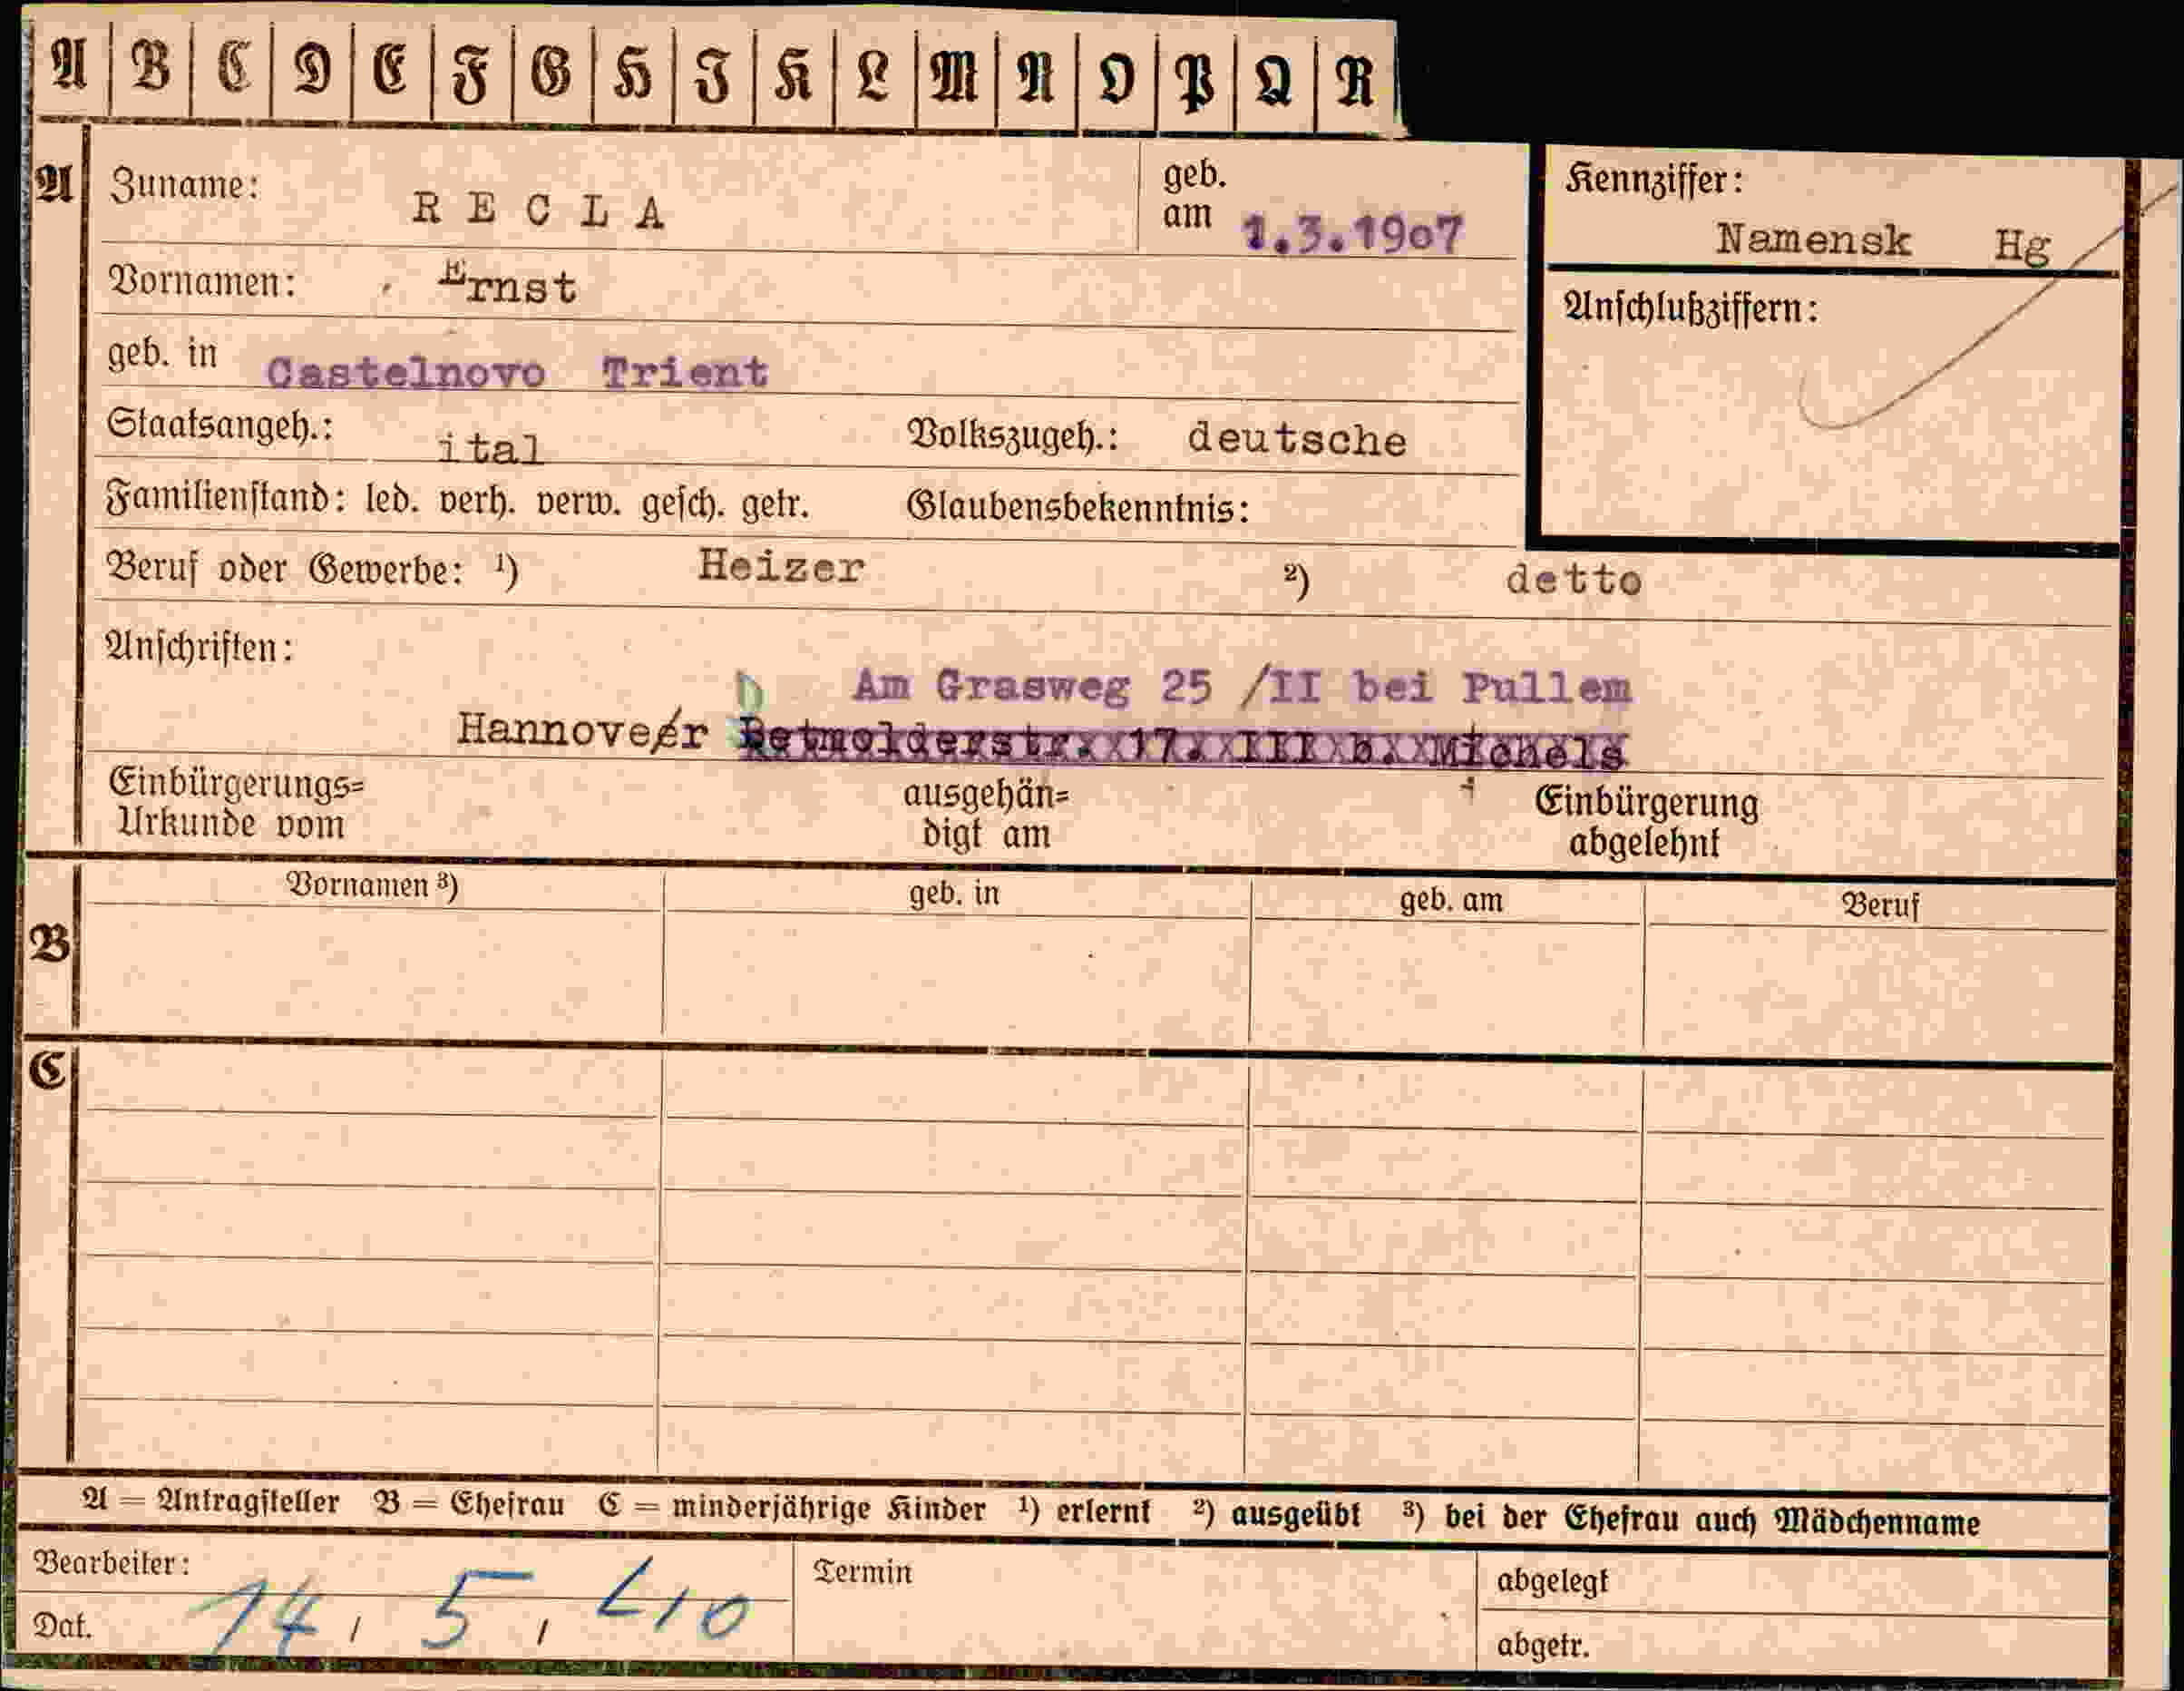 A B C D E F G H J K L M N O P Q R
A Zuname: RECLA geb. am 1.3.1907 Kennziffer:
Namensk Hg
Vornamen: Ernst Anschlußziffern:
geb. in Castelnovo Trient
Staatsangeh.: ital Volkszugeh.: deutsche
Familienstand: led. verh. verw. gesch. getr. Glaubensbekenntnis:
Beruf oder Gewerbe: 1) Heizer 2) detto
Anschriften:
D Am Grasweg 25 /II bei Pullem
Hannoveer Detmolderstr. 17. III b. Michels
Einbürgerungs= ausgehän= Einbürgerung
Urkunde vom digt am abgelehnt
Vornamen 3) geb. in geb. am Beruf
B
C
A = Antragsteller B = Ehefrau C = minderjährige Kinder 1) erlernt 2) ausgeübt 3) bei der Ehefrau auch Mädchenname
Bearbeiter: Termin abgelegt
Dat. 14, 5, 40 abgetr.